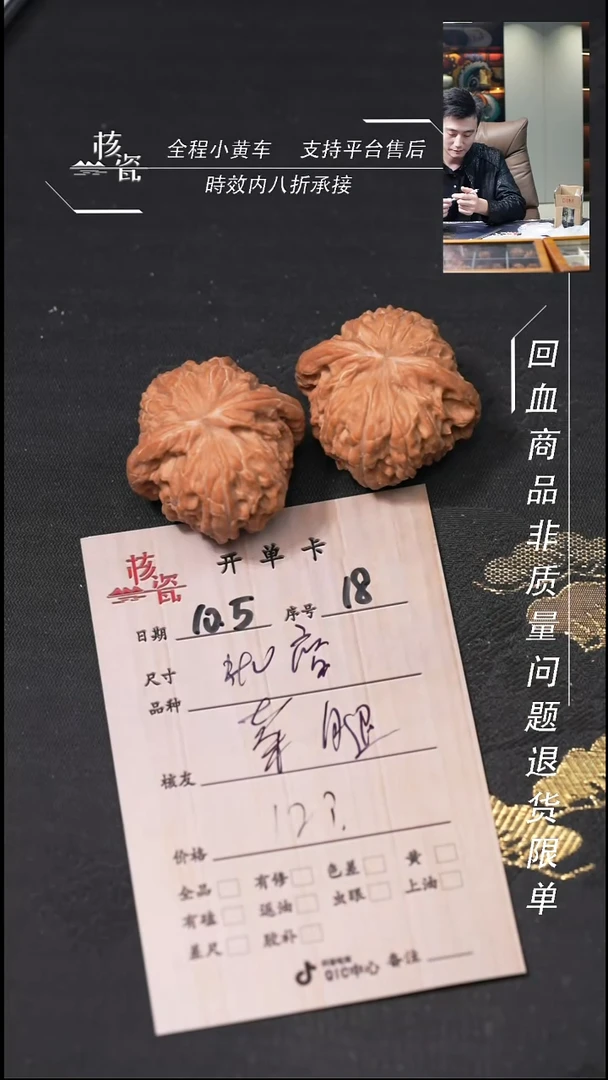 核瓷
全程小黄车 支持平台售后
時效内八折承接
回血商品非质量问题退货限单
核瓷
开单卡
日期 10.5 序号 18
尺寸
品种
核友
价格
全品 有修 色差 黄
有磕 返油 虫眼 上油
差尺 胶补
QIC中心 备注